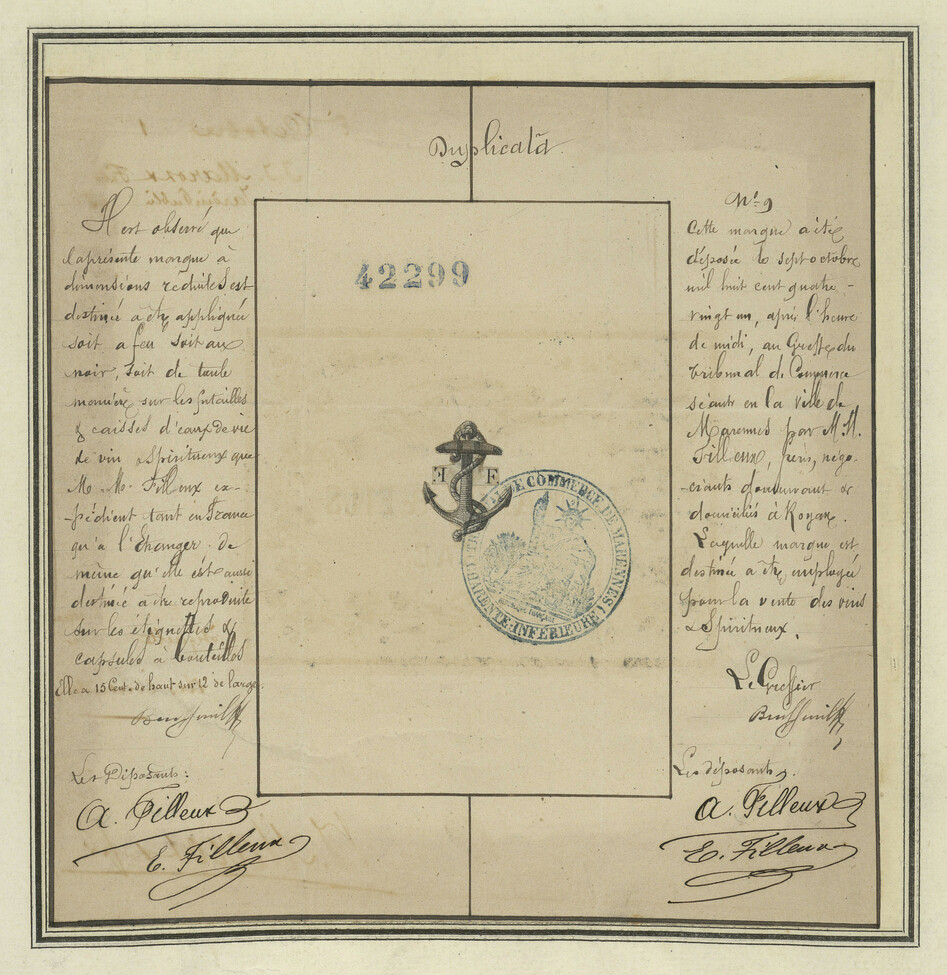 Duplicata
Il est observé que
la présente marque à
dimensions réduites, est
destinée à être appliquée
soit a feu soit au
noir, soit de toute
manière sur les futailles
& caisses d'eaux de vie
de vin & spiritueux que
M. M. Filleux ex-
-pédient tant en France
qu'à l'Etranger. de
même qu'elle est aussi
destinée à être reproduite
sur les étiquettes &
capsules à bouteilles
Elle a 15 Cent. de haut sur 12 de large.
Les Déposants:
A. Filleux
E. Filleux
42299
F F
TRIBUNAL DE COMMERCE DE MARENNES
(CHARENTE-INFÉRIEURE)
RÉPUBLIQUE FRANÇAISE
No 9
Cette marque a été
déposée le sept octobre
mil huit cent quatre-
vingt un, après l'heure
de midi, au Greffe du
Tribunal de Commerce
séant en la ville de
Marennes par M. M.
Filleux, frères, négo-
ciants demeurant &
domiciliés à Royan.
Laquelle marque est
destinée a être employée
pour la vente des vins
& Spiritueux.
Le Greffier
Les déposants,
A. Filleux
E. Filleux